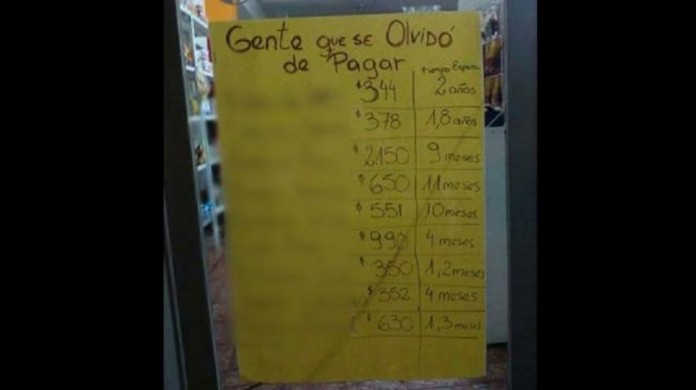 Gente que se Olvidó
de Pagar
tiempo Espera
$344 2 años
$378 1,8 años
$2150 9 meses
$650 11 meses
$551 10 meses
$990 4 meses
$350 1,2 meses
$352 4 meses
$630 1,3 meses